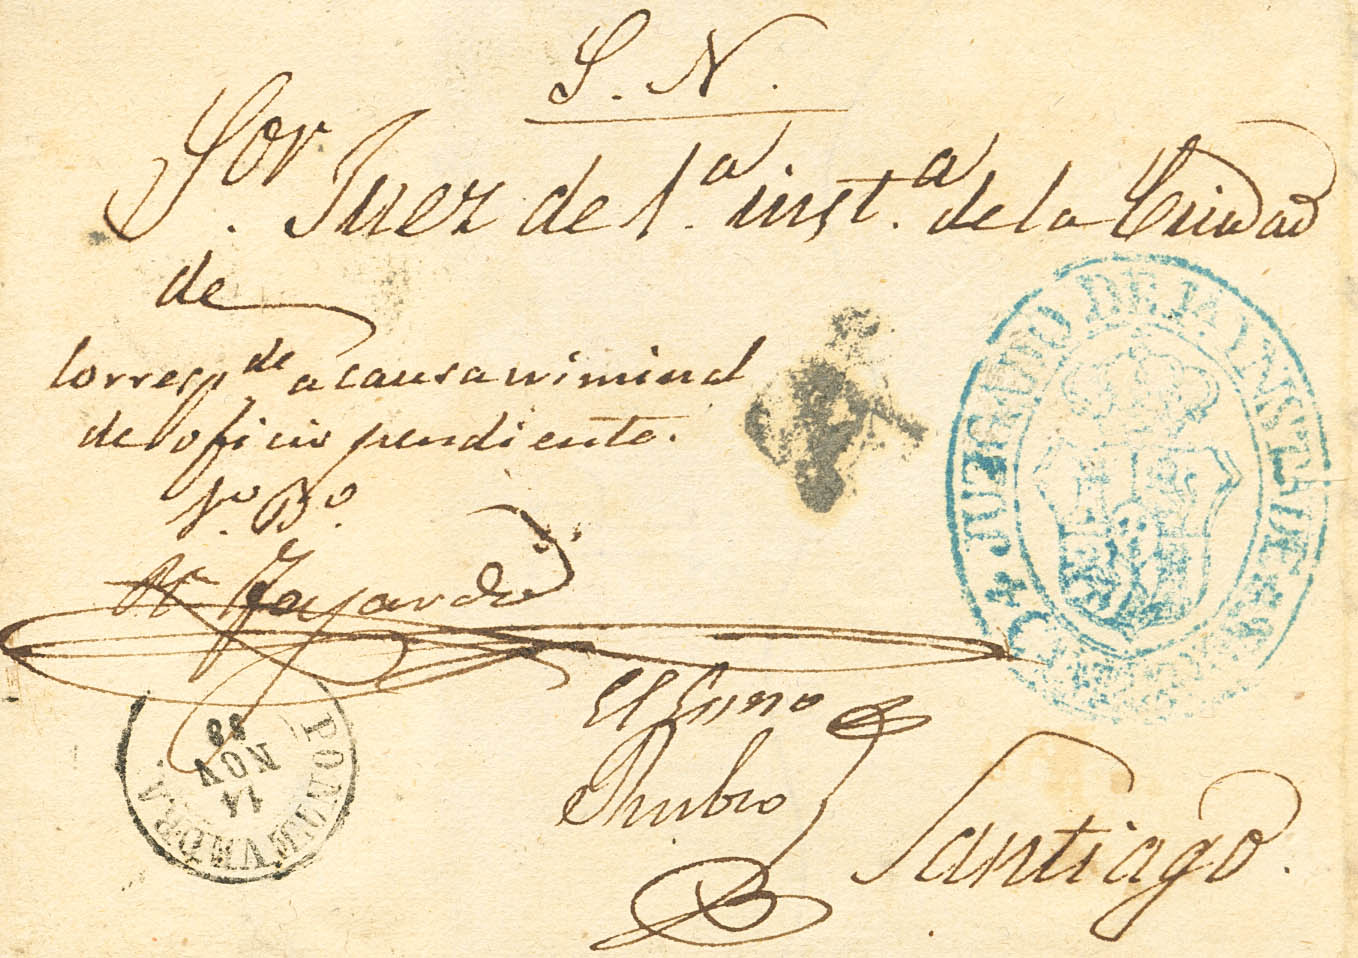 S. N.
Sor. Juez de 1.a inst.a de la Ciudad
de
Corresp.de a causa criminal
de oficio pendiente.
V.o B.o
Fajardo
El Essno
Rubio
Santiago.
JUZGADO DE 1A INSTA DE
PONTEVEDRA
14
NOV